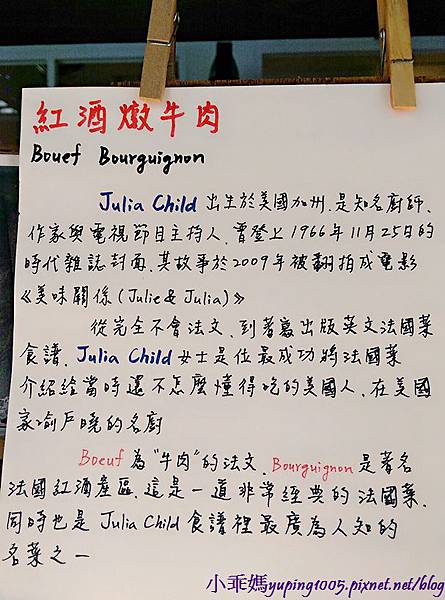 紅酒燉牛肉
Bouef Bourguignon
Julia Child 出生於美國加州.是知名廚師.
作家與電視節目主持人.曾登上1966年11月25日的
時代雜誌封面.其故事於2009年被翻拍成電影
《美味關係(Julie & Julia)》
從完全不會法文.到著書出版英文法國菜
食譜.Julia Child女士是位最成功將法國菜
介紹給當時還不怎麼懂得吃的美國人.在美國
家喻戶曉的名廚
Boeuf 為"牛肉"的法文.Bourguignon是著名
法國紅酒產區.這是一道非常經典的法國菜.
同時也是 Julia Child 食譜裡最廣為人知的
名菜之一
小乖媽yuping1005.pixnet.net/blog